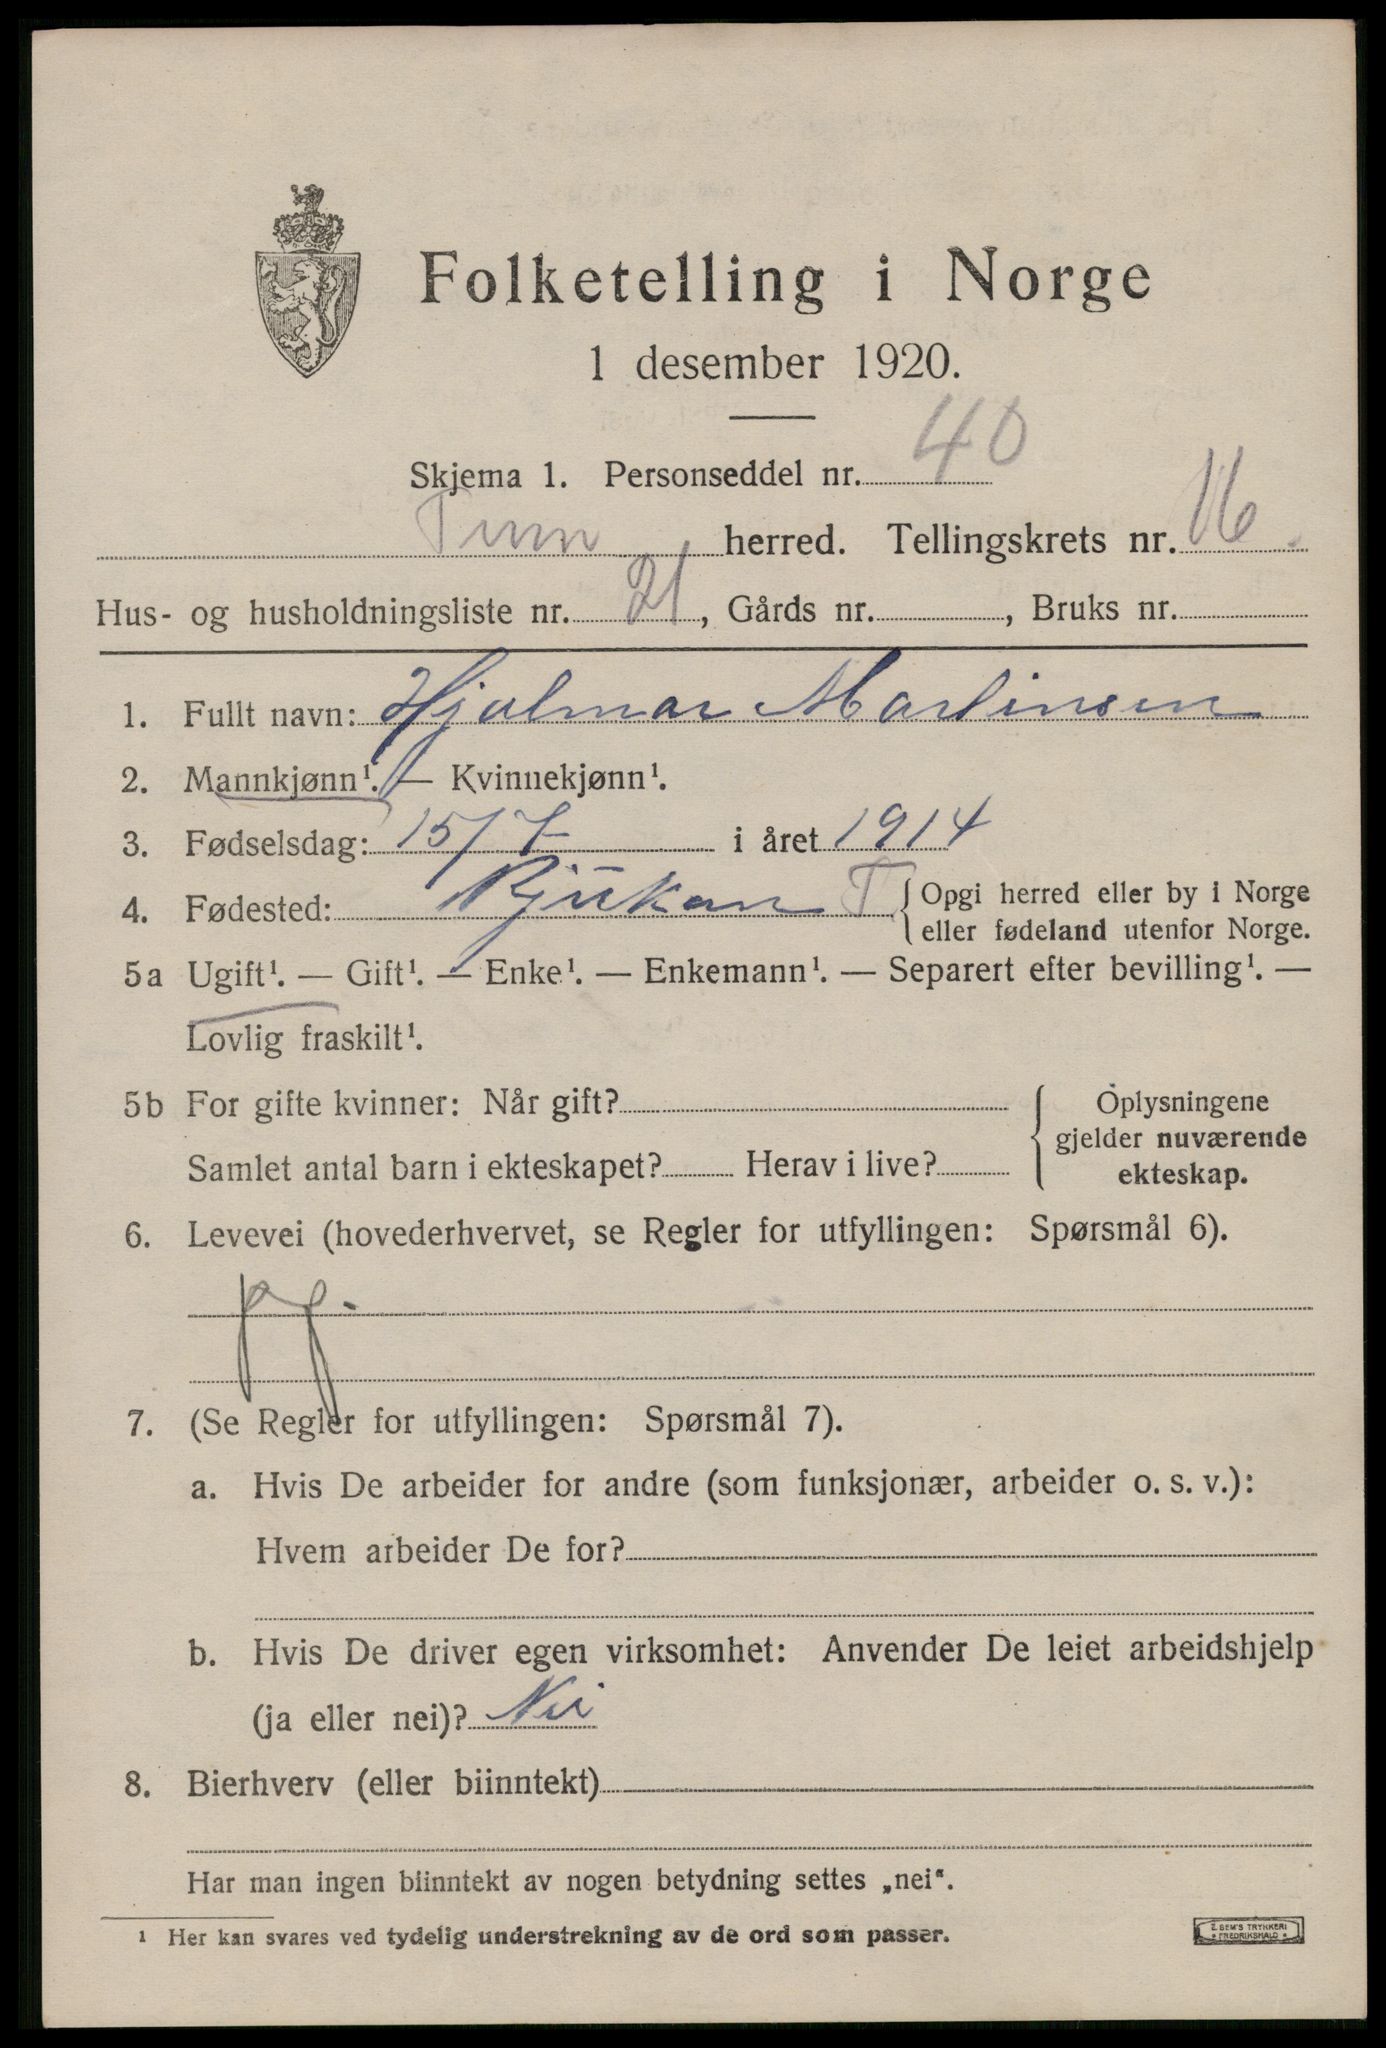 Folketelling i Norge
1 desember 1920.
Skjema 1. Personseddel nr. 40
Tinn herred. Tellingskrets nr. 16.
Hus- og husholdningsliste nr. 21, Gårds nr. , Bruks nr.
1. Fullt navn: Hjalmar Martinsen
2. Mannkjønn¹. — Kvinnekjønn¹.
3. Fødselsdag: 15/7 i året 1914
4. Fødested: Rjukan T { Opgi herred eller by i Norge
eller fødeland utenfor Norge.
5a Ugift¹. — Gift¹. — Enke¹. — Enkemann¹. — Separert efter bevilling¹. —
Lovlig fraskilt¹.
5b For gifte kvinner: Når gift? { Oplysningene
gjelder nuværende
Samlet antal barn i ekteskapet? Herav i live? ekteskap.
6. Levevei (hovederhvervet, se Regler for utfyllingen: Spørsmål 6).
7. (Se Regler for utfyllingen: Spørsmål 7).
a. Hvis De arbeider for andre (som funksjonær, arbeider o. s. v.):
Hvem arbeider De for?
b. Hvis De driver egen virksomhet: Anvender De leiet arbeidshjelp
(ja eller nei)? Nei
8. Bierhverv (eller biinntekt)
Har man ingen biinntekt av nogen betydning settes „nei“.
¹ Her kan svares ved tydelig understrekning av de ord som passer.
E. SEM'S TRYKKERI
* FREDRIKSHALD *